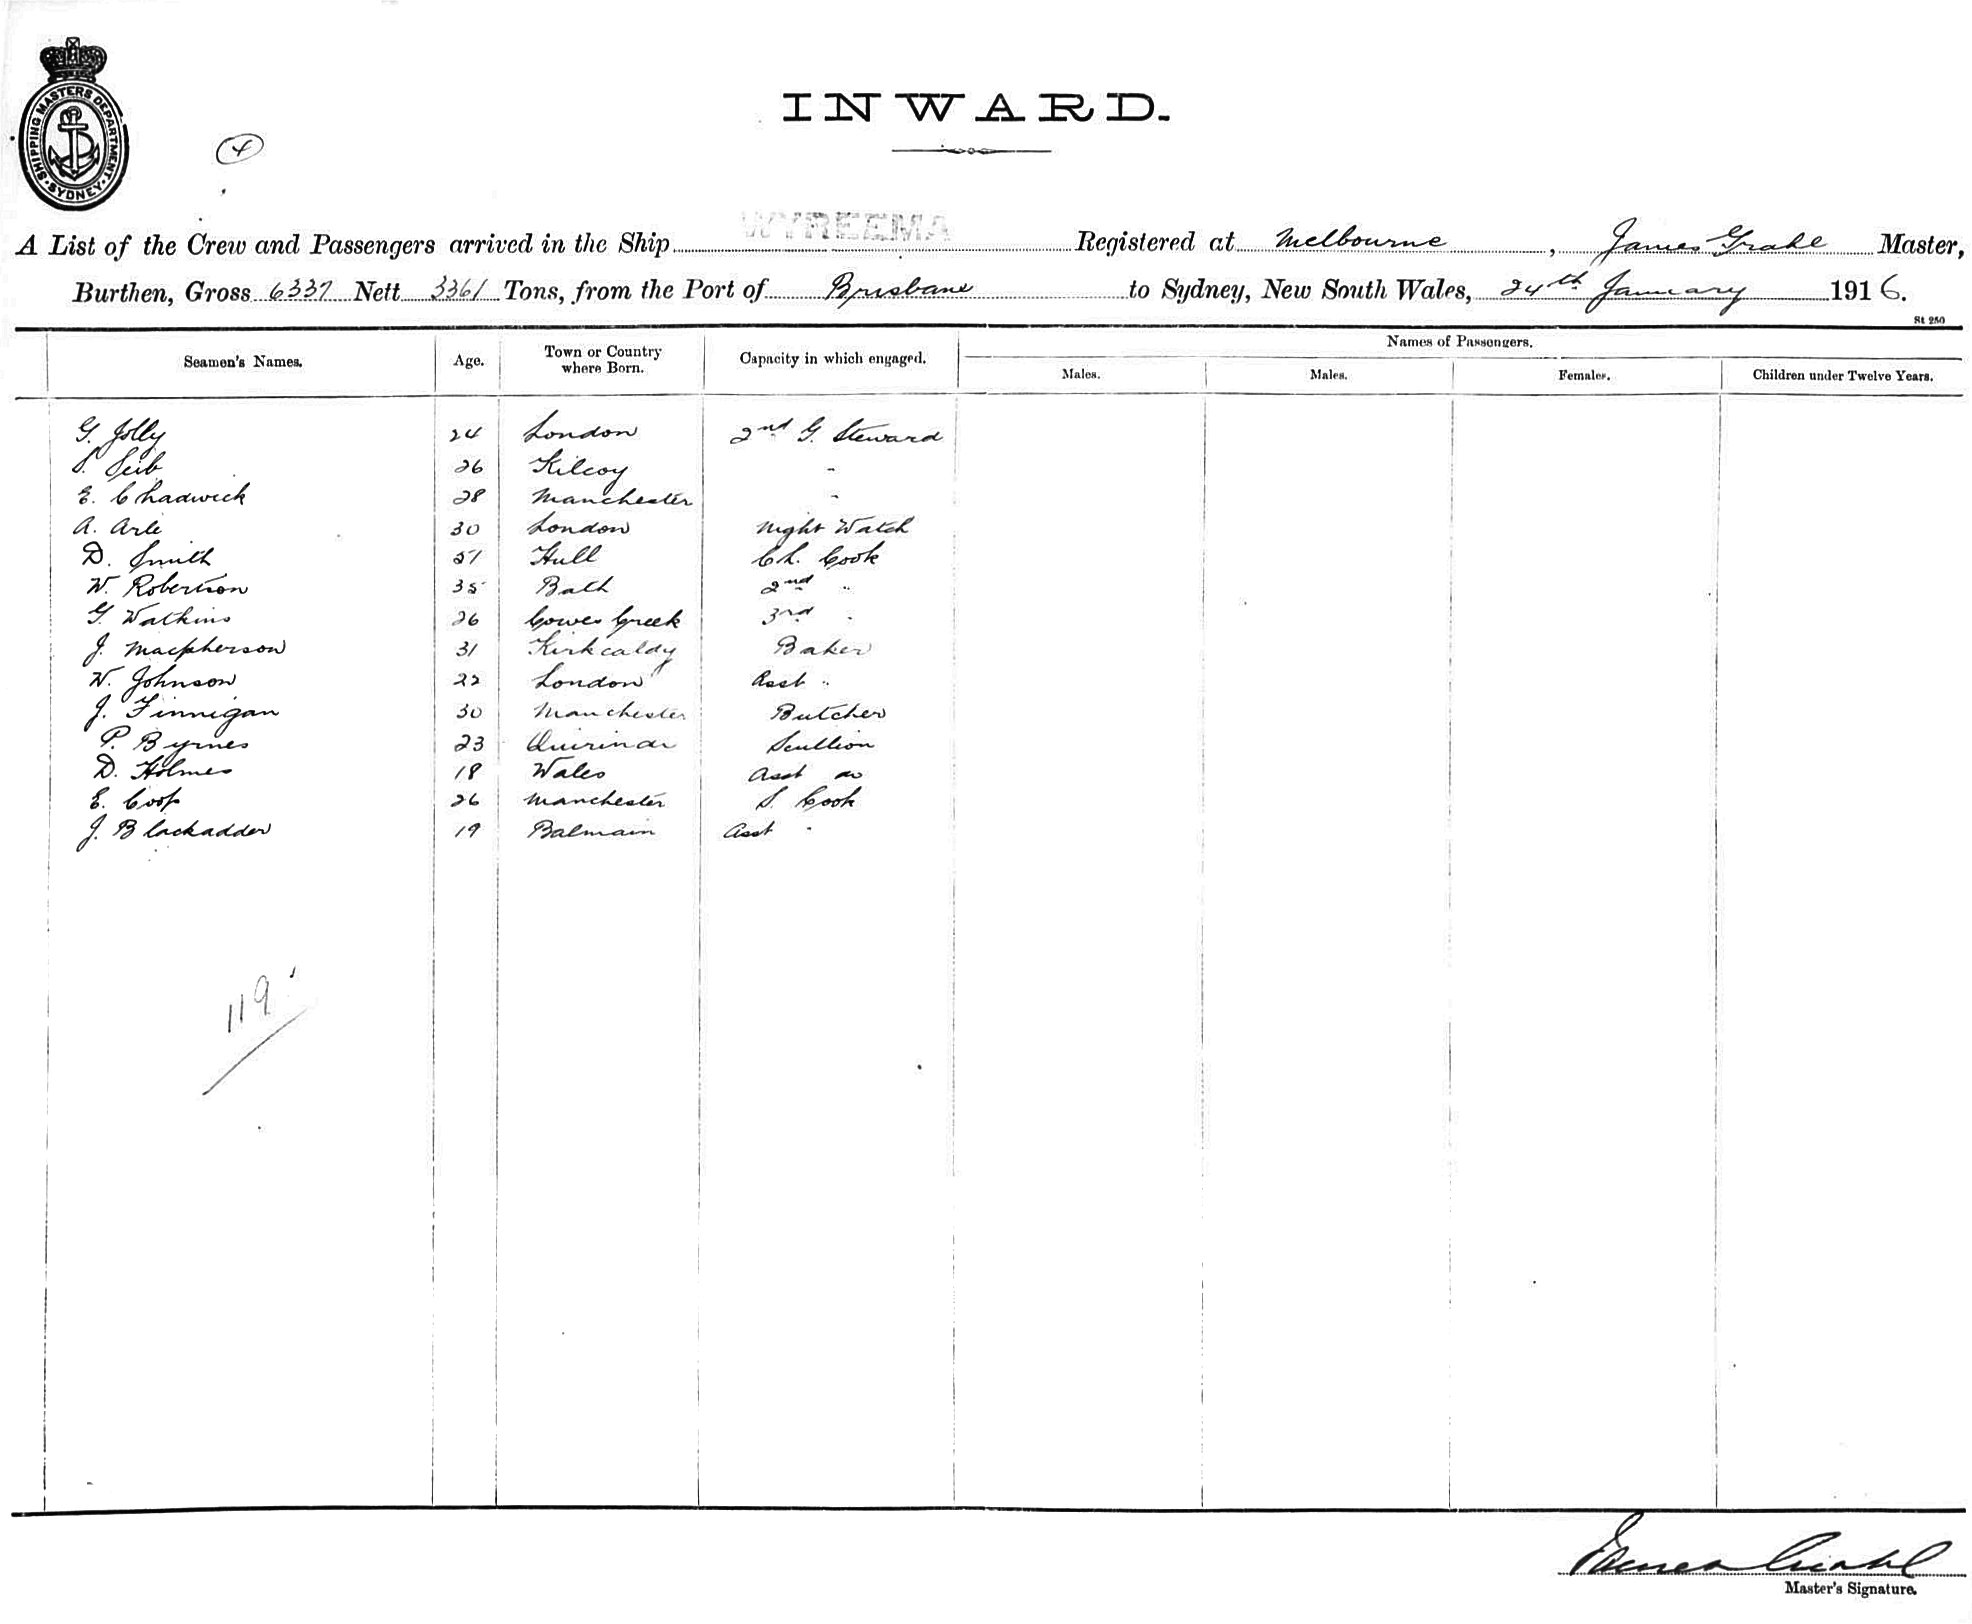 SHIPPING MASTERS DEPARTMENT
SYDNEY
4
INWARD.
A List of the Crew and Passengers arrived in the Ship WYREEMA Registered at Melbourne, James Grahl Master,
Burthen, Gross 6337 Nett 3361 Tons, from the Port of Brisbane to Sydney, New South Wales, 24th January 1916.
St 250
Seamen's Names. Age. Town or Country where Born. Capacity in which engaged. Names of Passengers.
Males. Males. Females. Children under Twelve Years.
G. Jolly 24 London 2nd G. Steward
S. Seib 26 Kilcoy "
E. Chadwick 28 Manchester "
A. Arle 30 London Night Watch
D. Smith 51 Hull Ch. Cook
W. Robertson 35 Bath 2nd "
G. Watkins 26 Cowes Creek 3rd "
J. Macpherson 31 Kirkcaldy Baker
W. Johnson 22 London Asst "
J. Finnigan 30 Manchester Butcher
P. Byrnes 23 Quirindi Scullion
D. Holmes 18 Wales Asst do
E. Coop 26 Manchester S. Cook
J. Blackadder 19 Balmain Asst "
119
James Grahl
Master's Signature.